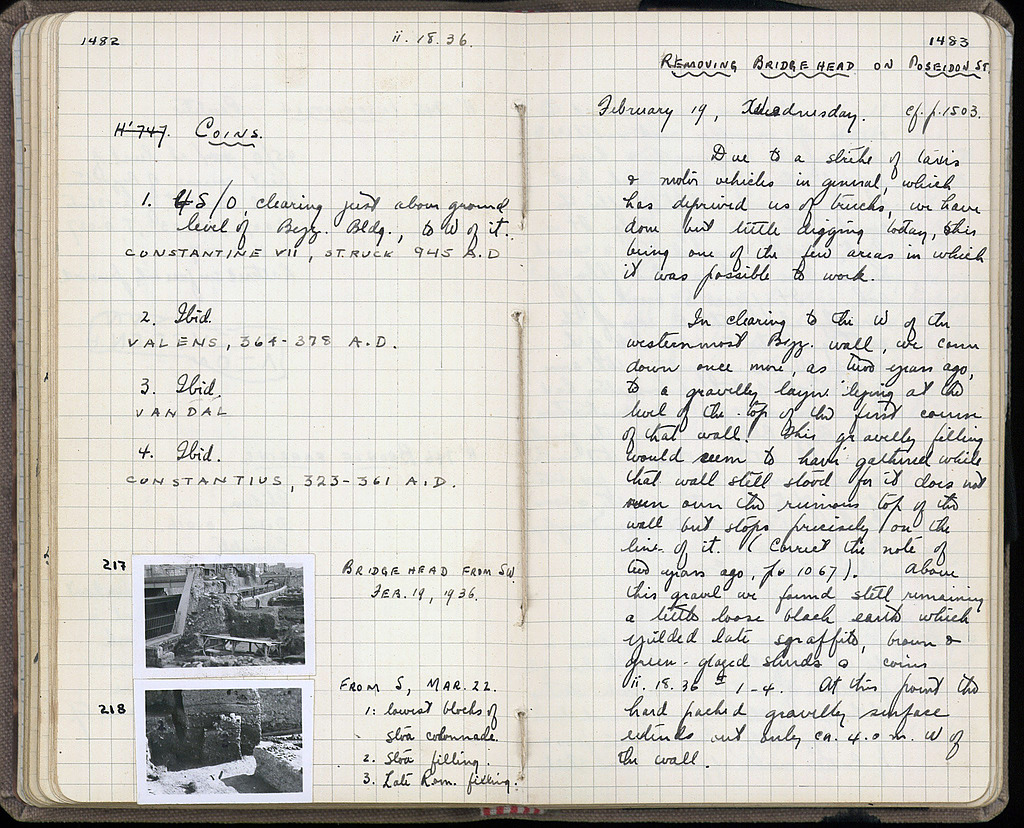 1482
ii. 18. 36.
H'747. COINS.
1. 45/0, clearing just above ground
level of Byz. Bldg., to W of it.
CONSTANTINE VII, STRUCK 945 A.D
2. Ibid.
VALENS, 364-378 A.D.
3. Ibid.
VANDAL
4. Ibid.
CONSTANTIUS, 323-361 A.D.
217
BRIDGE HEAD FROM SW.
FEB. 19, 1936.
218
FROM S, MAR. 22.
1: lowest blocks of
stoa colonnade.
2. Stoa filling.
3. Late Rom. filling.
1483
REMOVING BRIDGE HEAD ON POSEIDON ST.
February 19, Wednesday. cf. p. 1503.
Due to a strike of taxis
& motor vehicles in general, which
has deprived us of trucks, we have
done but little digging today, this
being one of the few areas in which
it was possible to work.
In clearing to the W of the
westernmost Byz. wall, we came
down once more, as two years ago,
to a gravelly layer lying at the
level of the top of the first course
of that wall. This gravelly filling
would seem to have gathered while
that wall still stood for it does not
run over the ruinous top of the
wall but stops precisely on the
line of it. (Correct the note of
two years ago, p. 1067). Above
this gravel we found still remaining
a little loose black earth which
yielded late sgraffito, brown &
green-glazed sherds & coins
ii. 18. 36 # 1-4. At this point the
hard packed gravelly surface
extends out only ca. 4.0 m. W of
the wall.